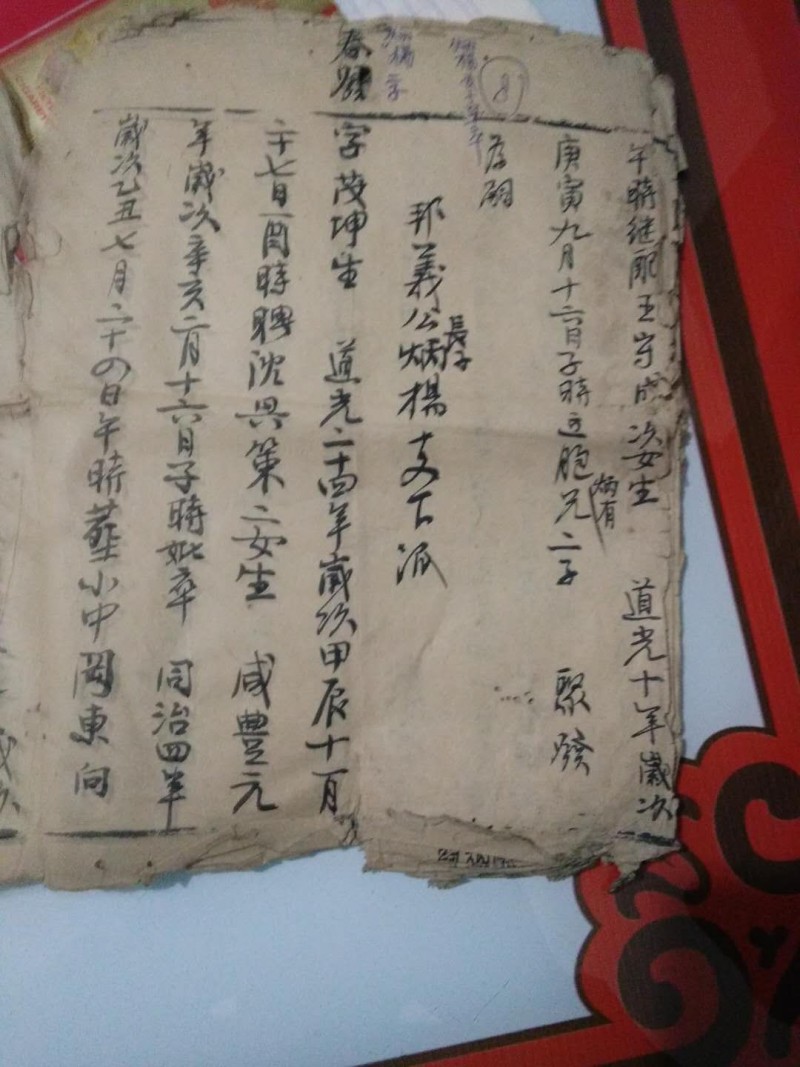 午時继配王守成次女生 道光十年歲次
庚寅九月十六日子時立胞兄二子 聚發
炳有
為嗣
邦義公炳楊支下派
長子
春發
字茂坤生 道光二十四年歲次甲辰十一月
二十七日酉時聘沈具策二女生 咸豊元
年歲次辛亥二月十六日子時妣卒 同治四年
歲次乙丑七月二十四日午時葬小中岡東向
8